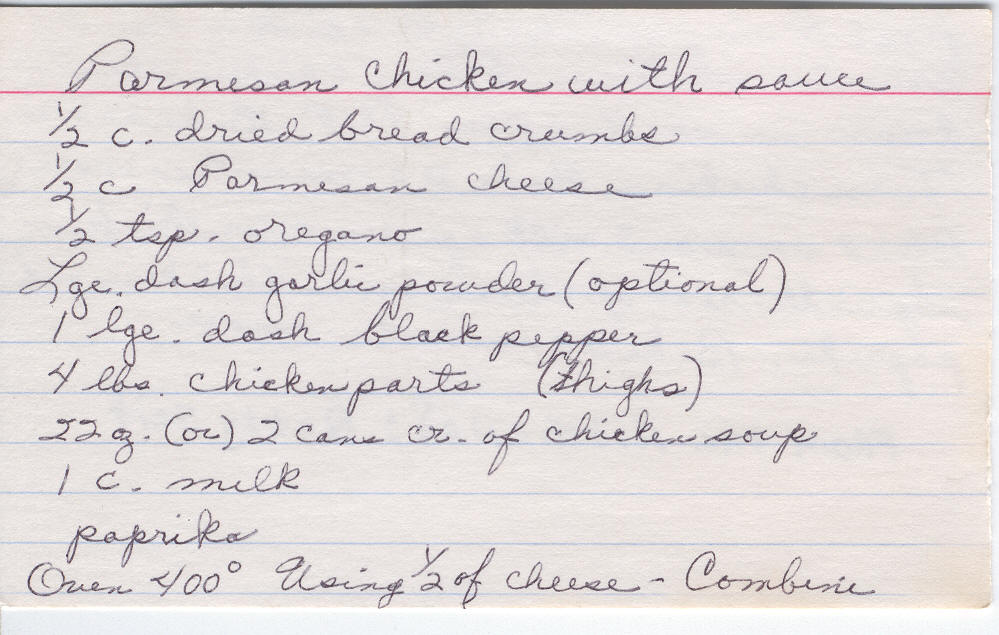 Parmesan Chicken with sauce
1/2 c. dried bread crumbs
1/2 c Parmesan cheese
1/2 tsp. oregano
Lge. dash garlic powder (optional)
1 lge. dash black pepper
4 lbs. chicken parts (thighs)
22 oz. (or) 2 cans cr. of chicken soup
1 c. milk
paprika
Oven 400° Using 1/2 of cheese - Combine